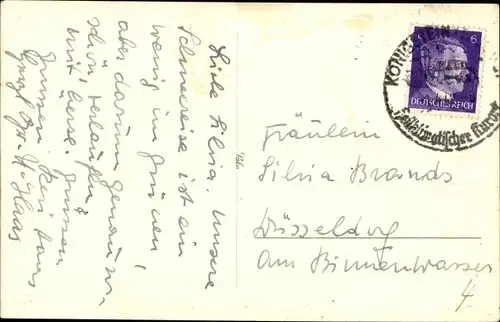 Liebe Silvia. Unsere
Schneereise ist ein
wenig im grünen,
aber darum genau so
schön, verlaufen.
mit besse. Grüssen
Grüssen
Haas
6
DEUTSCHES REICH
KÖNIGSTEIN
heilklimatischer Kurort
Fräulein
Silvia Brands
Düsseldorf
Am Binnenwasser
4